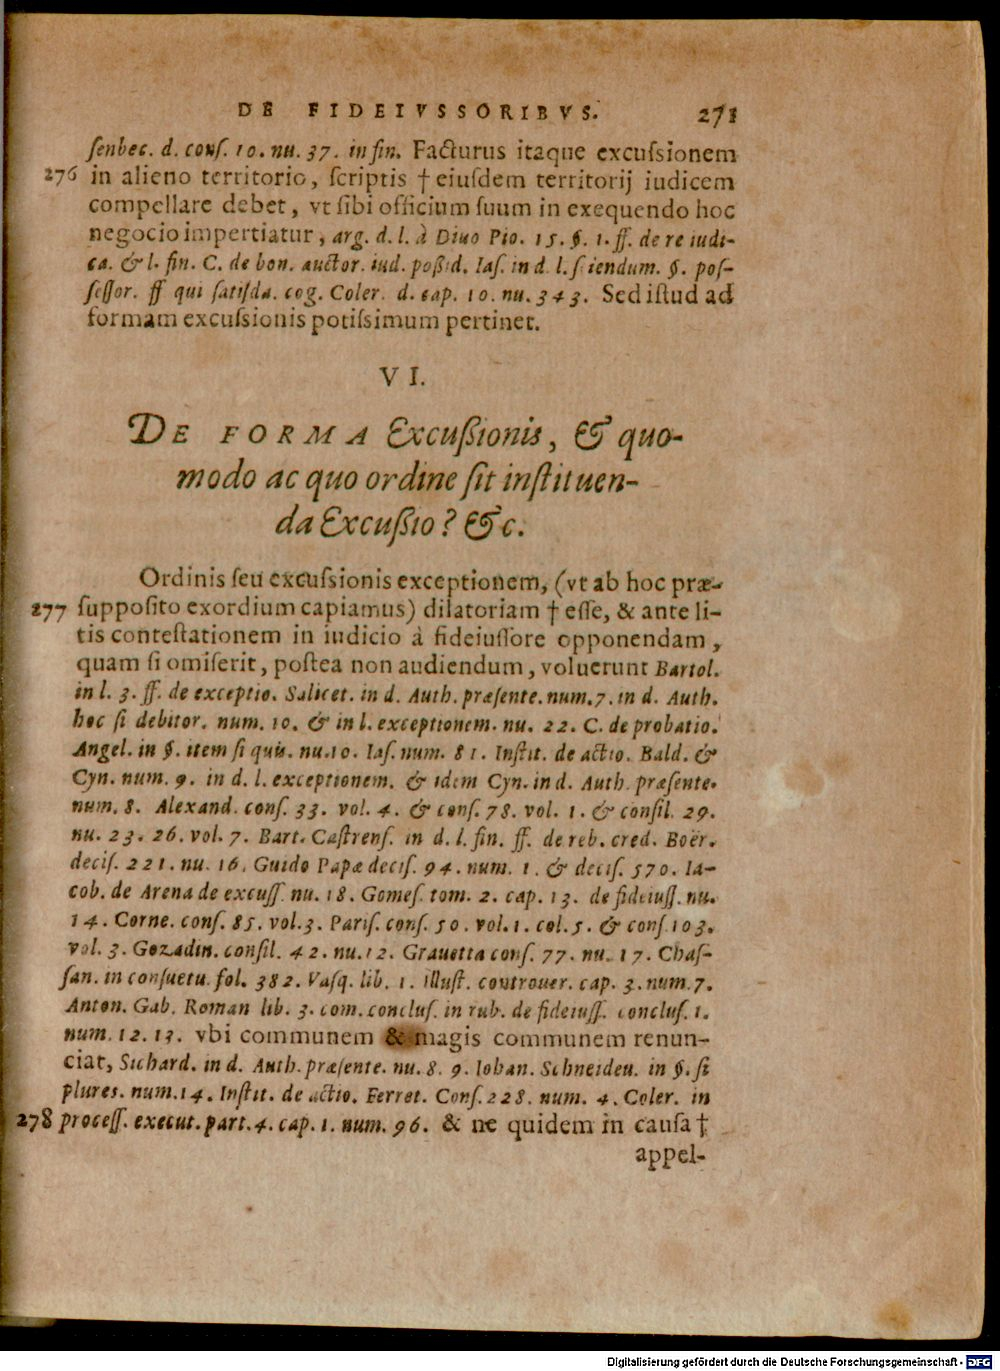 DE FIDEIVSSORIBVS. 271
ſenbec. d. conſ. 10. nu. 37. in fin. Facturus itaque excuſsionem
276 in alieno territorio, ſcriptis † eiuſdem territorij iudicem
compellare debet, vt ſibi officium ſuum in exequendo hoc
negocio impertiatur, arg. d. l. à Diuo Pio. 15. §. 1. ff. de re iudi-
ca. & l. fin. C. de bon. auctor. iud. poßid. Iaſ. in d. l. ſciendum. §. poſ-
ſeſſor. ff qui ſatiſda. cog. Coler. d. cap. 10. nu. 343. Sed iſtud ad
formam excuſsionis potiſsimum pertinet.
VI.
DE FORMA Excußionis, & quo-
modo ac quo ordine ſit inſtituen-
da Excußio? &c.
Ordinis ſeu excuſsionis exceptionem, (vt ab hoc præ-
277 ſuppoſito exordium capiamus) dilatoriam † eſſe, & ante li-
tis conteſtationem in iudicio à fideiuſſore opponendam,
quam ſi omiſerit, poſtea non audiendum, voluerunt Bartol.
in l. 3. ff. de exceptio. Salicet. in d. Auth. præſente. num. 7. in d. Auth.
hoc ſi debitor. num. 10. & in l. exceptionem. nu. 22. C. de probatio.
Angel. in §. item ſi quis. nu. 10. Iaſ. num. 81. Inſtit. de actio. Bald. &
Cyn. num. 9. in d. l. exceptionem. & idem Cyn. in d. Auth. præſente.
num. 8. Alexand. conſ. 33. vol. 4. & conſ. 78. vol. 1. & conſil. 29.
nu. 23. 26. vol. 7. Bart. Caſtrenſ. in d. l. fin. ff. de reb. cred. Boër.
deciſ. 221. nu. 16. Guido Papæ deciſ. 94. num. 1. & deciſ. 570. Ia-
cob. de Arena de excuſſ. nu. 18. Gomeſ. tom. 2. cap. 13. de fideiuſſ. nu.
14. Corne. conſ. 85. vol. 3. Pariſ. conſ. 50. vol. 1. col. 5. & conſ. 103.
vol. 3. Gozadin. conſil. 42. nu. 12. Grauetta conſ. 77. nu. 17. Chaſ-
ſan. in conſuetu. fol. 382. Vaſq. lib. 1. illuſt. controuer. cap. 3. num. 7.
Anton. Gab. Roman lib. 3. com. concluſ. in rub. de fideiuſſ. concluſ. 1.
num. 12. 13. vbi communem & magis communem renun-
ciat, Sichard. in d. Auth. præſente. nu. 8. 9. Iohan. Schneideu. in §. ſi
plures. num. 14. Inſtit. de actio. Ferret. Conſ. 228. num. 4. Coler. in
278 proceſſ. execut. part. 4. cap. 1. num. 96. & ne quidem in cauſa †
appel-
Digitalisierung gefördert durch die Deutsche Forschungsgemeinschaft - DFG